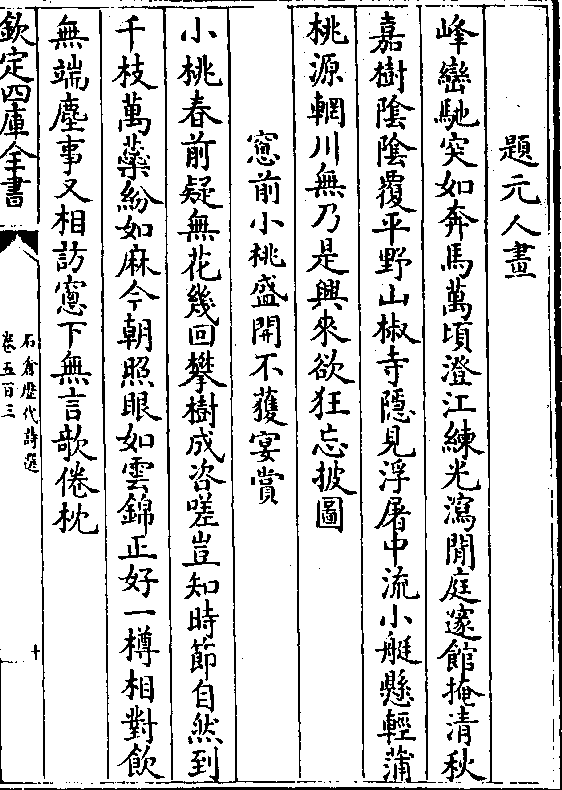 題元人畫
峰巒馳突如奔馬萬頃澄江練光瀉閒庭邃館掩清秋
嘉樹陰陰覆平野山椒寺隱見浮屠中流小艇懸輕蒲
桃源輞川無乃是興來欲狂忘披圖
窻前小桃盛開不獲宴賞
小桃春前疑無花幾回攀樹成咨嗟豈知時節自然到
千枝萬蘂紛如麻今朝照眼如雲錦正好一樽相對飲
無端塵事又相訪窻下無言欹倦枕
欽定四庫全書
石倉歷代詩選
卷五百三
十